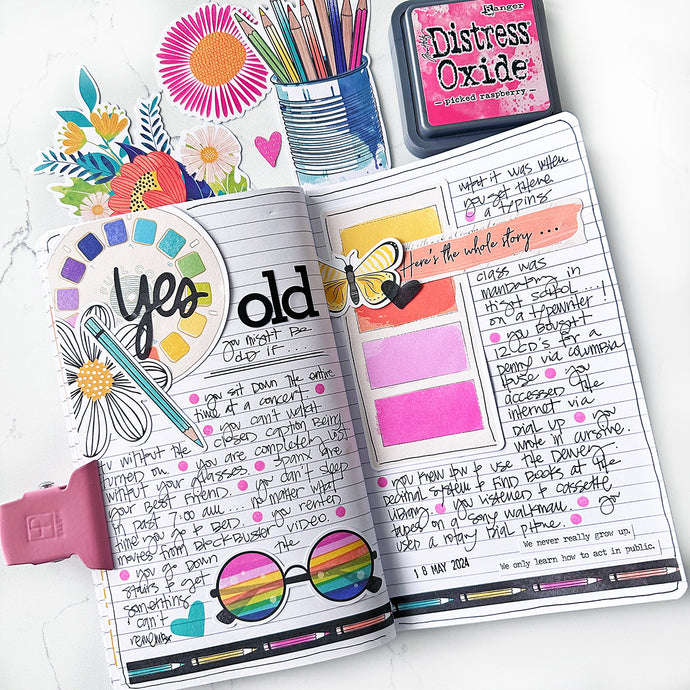 Ranger
Distress
Oxide
picked raspberry
yes old
you might be
old if ...
you sit down the entire
time at a concert.
you can't watch
TV without the closed caption being
turned on. you are completely lost
without your glasses. spanx are
your best friend. you can't sleep
in past 7:00 am... no matter what
time you go to bed. you rented
movies from blockbuster video.
you go down the
stairs to get
something
can't
remember
what it was when
you get there
a typing
Here's the whole story ...
class was
mandatory in
high school ...!
on a typewriter!
you bought
12 CD's for a
penny via columbia
house. you
accessed the
internet via
dial up. you
wrote in cursive.
you knew how to use the dewey
decimal system to find books at the
library. you listened to cassette
tapes on a sony walkman. you
used a rotary dial phone.
We never really grow up.
We only learn how to act in public.
18 MAY 2024